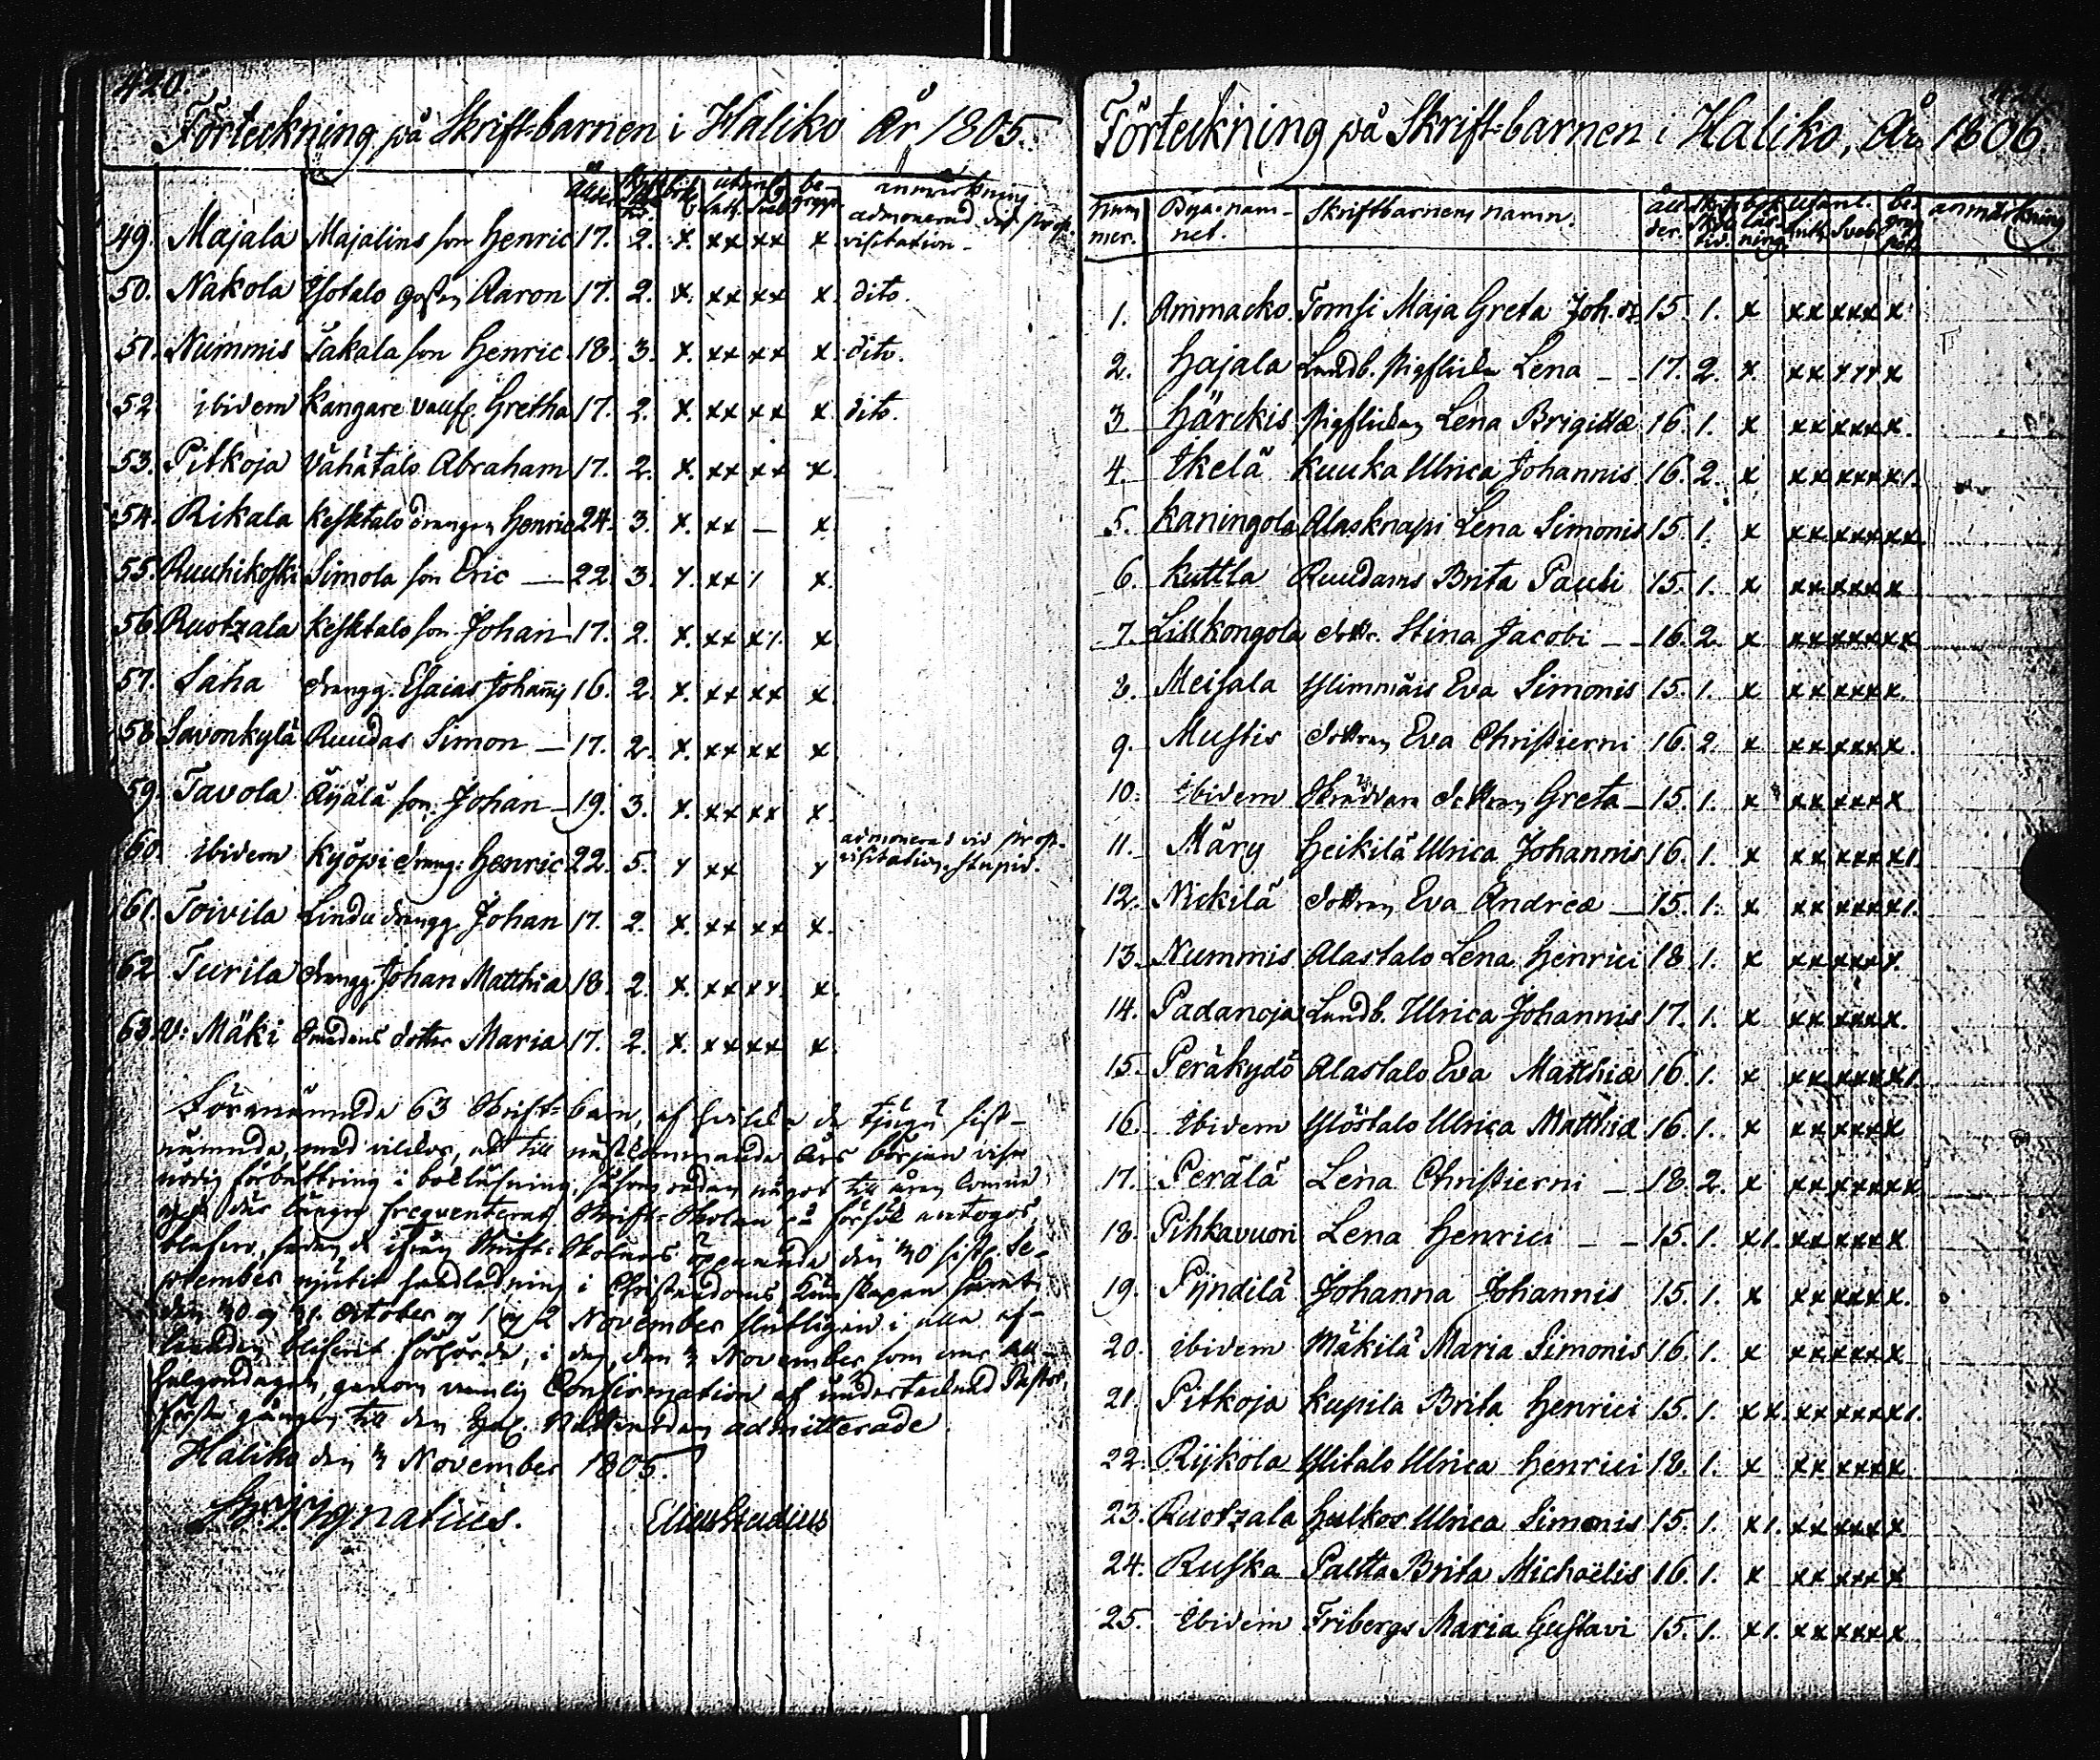 420.
Förteckning på Skrift-barnen i Haliko År 1805.
ålder bok utanl. be- anmärkning
49. Majala Majalins son Henric 17. 2. x. xx xx x. admonerad vid prost visitation
50. Nakola Yötalo gossen Aaron 17. 2. x. xx xx x. dito.
51. Nummis Takala son Henric 18. 3. x. xx xx x. dito.
52. ibidem Kangare Gretha 17. 2. x. xx xx x. dito.
53. Pitkoja Vähätalo Abraham 17. 2. x. xx xx x.
54. Rikala Kesktalo drängen Henric 24. 3. x. xx — x.
55. Ruuhikoski Simola son Eric — 22. 3. x. xx / x.
56. Ruotzala Kesktalo son Johan 17. 2. x. xx x/. x
57. Saha drengg. Esaias Johannis 16. 2. x. xx xx x
58. Savonkylä Ruudas Simon — 17. 2. x. xx xx x
59. Tavola Äyälä son Johan — 19. 3. x. xx xx x.
60. ibidem Kyöpi dreng: Henric 22. 5. x xx x admonerad vid prost- visitation, stupid.
61. Toivila Lindu drengg. Johan 17. 2. x. xx xx x.
62. Turila drengg. Johan Matthiæ 18. 2. x. xx xx. x.
63. V: Mäki dotter Maria 17. 2. x. xx xx x.
Förenämnda 63 Skrift-barn, af hvilka de tjugu sist-
nämnda, med villkor, att till nästkommande års början visa
nödig förbättring i bokläsning, såsom redan något till åren komne
och där länge frequenterat Skrift-Skolan på försök antogos
blefvo, sedan de ifrån Skrift-Skolans öppnande den 30 sistl. Se-
ptember njutit handledning i Christendoms Kunskapen samt
den 30 og 31. October og 1 og 2 November slutligen i alla af-
handling blifvit förhörde, i dag, den 3 November, som var All-
helgondagen, genom vanlig Confirmation af undertecknad Pastor,
första gången till den Hel. Nattvarden admitterade.
Haliko den 3 November 1805.
Ignatius.
Förteckning på Skrift-barnen i Haliko, År 1806.
Num mer. Bya-nam- net. Skriftbarnens namn. ål- der. Skrift Skole tid. bok läs- ning. Utanl. Luth. Sveb. be- grep- pet. anmärkning
1. Ammacko. Tomsi Maja Greta Joh. dr. 15. 1. x xx xxx x
2. Hajala Lundb. Pigflickan Lena — 17. 2. x. xx xxx x
3 Härckis Pigflickan Lena Brigittæ 16. 1. x xx xxx x.
4. Ikelä Kuuka Ulrica Johannis 16. 2. x xx xxx x1.
5. Kaningola Alasknapi Lena Simonis 15. 1. x xx xxx xx.
6. Kuttla Ruudams Brita Pauli 15. 1. x xx xxx x
7. Lillkongola dottr. Stina Jacobi — 16. 2. x xx xxx xx
8. Meisala Ylimmäis Eva Simonis 15. 1. x xx xxx x.
9. Mustis dottren Eva Christierni 16. 2. x xx xxx x.
10. Ibidem dottren Greta — 15. 1. x xx xxx x
11. Märy Heikilä Ulrica Johannis 16. 1. x xx xxx x1.
12. Nickilä dottren Eva Andreæ — 15. 1. x xx xxx x1.
13. Nummis Alastalo Lena Henrici 18. 1. x xx xxx x.
14. Padanoja Lundb. Ulrica Johannis 17. 1. x xx xxx x.
15. Peräkydö Alastalo Eva Matthiæ 16. 1. x xx xxx x1
16. Ibidem Ylöstalo Ulrica Matthiæ 16. 1. x xx xxx x
17. Perälä Lena Christierni — 18. 2. x xx xxx xx
18. Pihkavuori Lena Henrici — — 15. 1. x1. xx xxx x
19. Pijndilä Johanna Johannis 15. 1. x xx xxx x.
20. ibidem Mäkilä Maria Simonis 16. 1. x xx xxx x
21. Pitkoja Kupila Brita Henrici 15. 1. xx. xx xxx x1.
22. Rijkola Ylitalo Ulrica Henrici 18. 1. x xx xxx x
23. Ruotzala Hulkos Ulrica Simonis 15. 1. x1. xx xxx x
24. Ruska Paltta Brita Michaëlis 16. 1. x xx xxx x
25. Ibidem Fribergs Maria Gustavi 15. 1. x1. xx xxx x